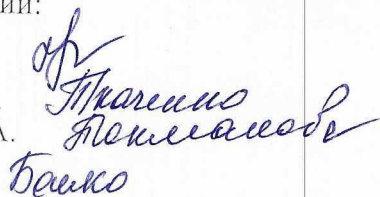 ии:
Ткаченко
А. Токманова
Бойко